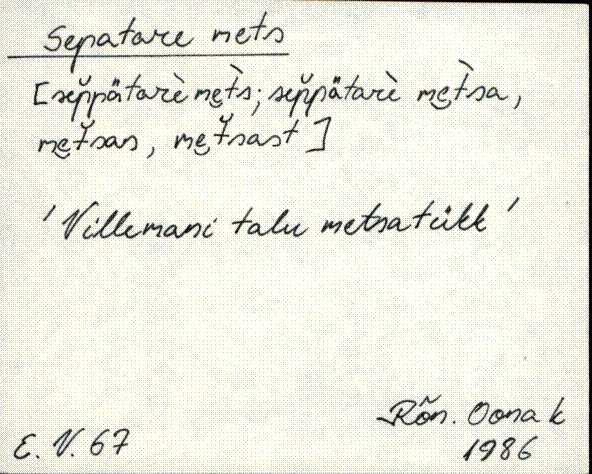 Sepatare mets
[sep̆pätarè me̮t̀s; sep̆pätarè me̮t̀sa,
me̮t̆san, me̮t̆sast]
'Villemani talu metsatükk'
Rõn. Oona k
E. V. 67 1986